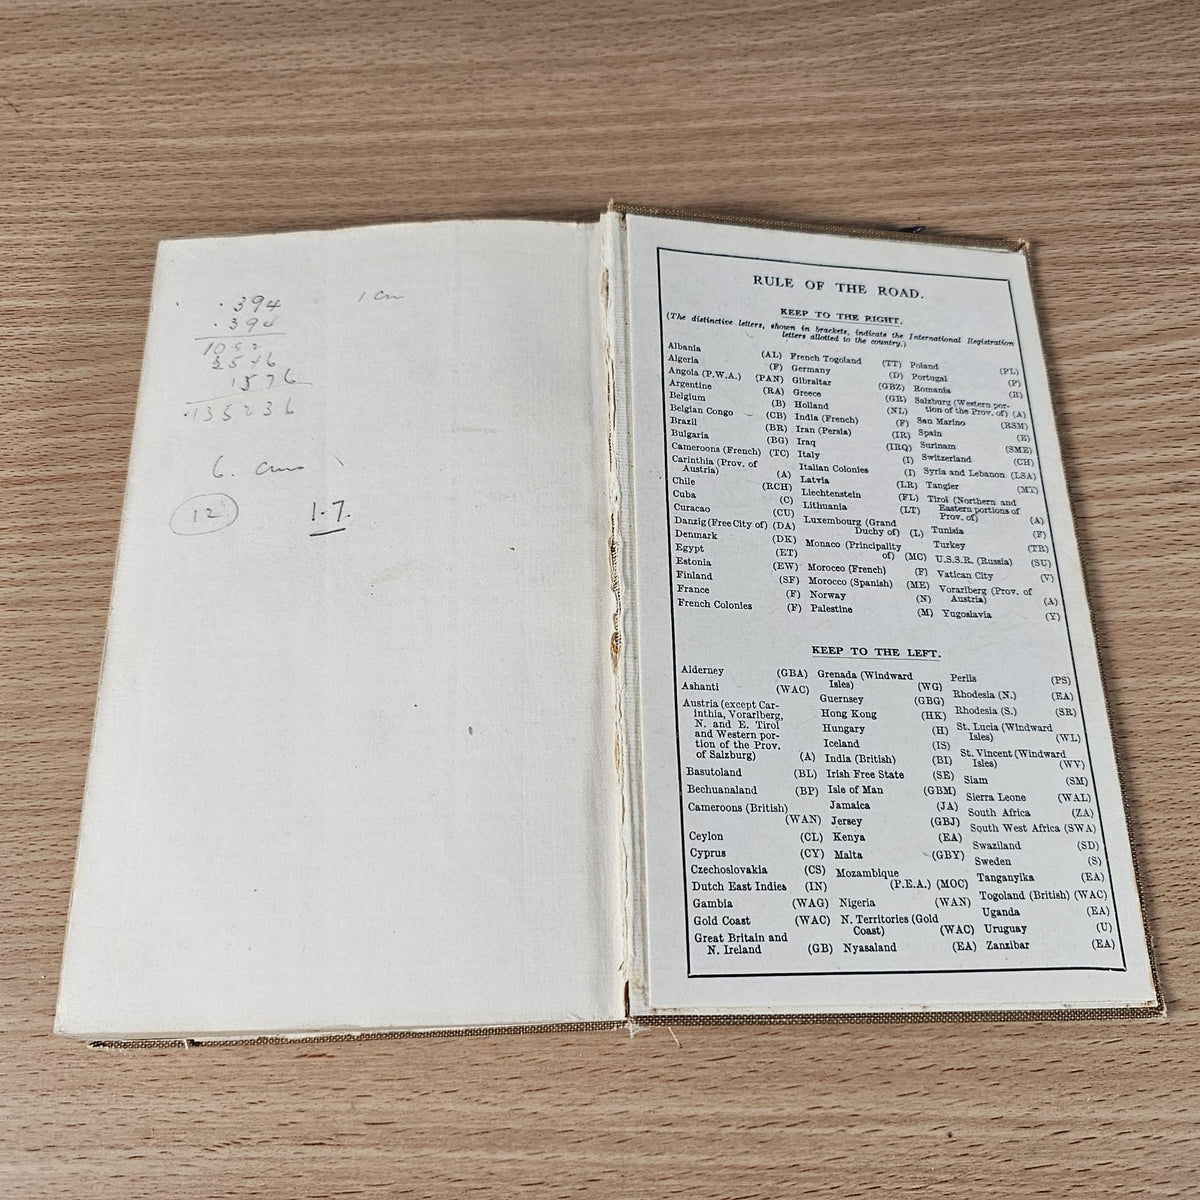 .394
1 cm
.394
1576
6. cms
12
1.7.
RULE OF THE ROAD.
KEEP TO THE RIGHT.
(The distinctive letters, shown in brackets, indicate the International Registration
letters allotted to the country.)
Albania (AL)
Algeria (F)
Angola (P.W.A.) (PAN)
Argentine (RA)
Belgium (B)
Belgian Congo (CB)
Brazil (BR)
Bulgaria (BG)
Cameroons (French) (TC)
Carinthia (Prov. of
Austria) (A)
Chile (RCH)
Cuba (C)
Curacao (CU)
Danzig (Free City of) (DA)
Denmark (DK)
Egypt (ET)
Estonia (EW)
Finland (SF)
France (F)
French Colonies (F)
French Togoland (TT)
Germany (D)
Gibraltar (GBZ)
Greece (GR)
Holland (NL)
India (French) (F)
Iran (Persia) (IR)
Iraq (IRQ)
Italy (I)
Italian Colonies (I)
Latvia (LR)
Liechtenstein (FL)
Lithuania (LT)
Luxembourg (Grand
Duchy of) (L)
Monaco (Principality
of) (MC)
Morocco (French) (F)
Morocco (Spanish) (ME)
Norway (N)
Palestine (M)
Poland (PL)
Portugal (P)
Romania (R)
Salzburg (Western por-
tion of the Prov. of) (A)
San Marino (RSM)
Spain (E)
Surinam (SME)
Switzerland (CH)
Syria and Lebanon (LSA)
Tangier (MT)
Tirol (Northern and
Eastern portions of
Prov. of) (A)
Tunisia (F)
Turkey (TR)
U.S.S.R. (Russia) (SU)
Vatican City (V)
Vorarlberg (Prov. of
Austria) (A)
Yugoslavia (Y)
KEEP TO THE LEFT.
Alderney (GBA)
Ashanti (WAC)
Austria (except Car-
inthia, Vorarlberg,
N. and E. Tirol
and Western por-
tion of the Prov.
of Salzburg) (A)
Basutoland (BL)
Bechuanaland (BP)
Cameroons (British)
(WAN)
Ceylon (CL)
Cyprus (CY)
Czechoslovakia (CS)
Dutch East Indies (IN)
Gambia (WAG)
Gold Coast (WAC)
Great Britain and
N. Ireland (GB)
Grenada (Windward
Isles) (WG)
Guernsey (GBG)
Hong Kong (HK)
Hungary (H)
Iceland (IS)
India (British) (BI)
Irish Free State (SE)
Isle of Man (GBM)
Jamaica (JA)
Jersey (GBJ)
Kenya (EA)
Malta (GBY)
Mozambique
(P.E.A.) (MOC)
Nigeria (WAN)
N. Territories (Gold
Coast) (WAC)
Nyasaland (EA)
Perlis (PS)
Rhodesia (N.) (EA)
Rhodesia (S.) (SR)
St. Lucia (Windward
Isles) (WL)
St. Vincent (Windward
Isles) (WV)
Siam (SM)
Sierra Leone (WAL)
South Africa (ZA)
South West Africa (SWA)
Swaziland (SD)
Sweden (S)
Tanganyika (EA)
Togoland (British) (WAC)
Uganda (EA)
Uruguay (U)
Zanzibar (EA)